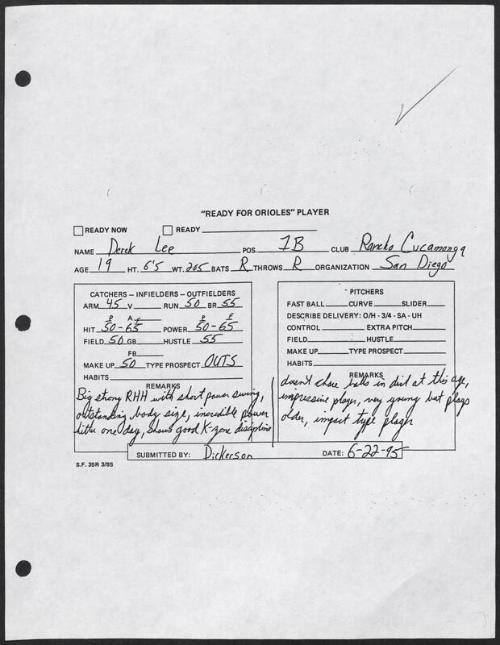 "READY FOR ORIOLES" PLAYER
READY NOW READY
NAME Derek Lee POS 1B CLUB Rancho Cucamonga
AGE 19 HT. 6'5 WT. 205 BATS R THROWS R ORGANIZATION San Diego
CATCHERS – INFIELDERS – OUTFIELDERS
ARM 45 V RUN 50 BR 55
P A F P F
HIT 50-65 POWER 50-65
FIELD 50 GB HUSTLE 55
FB
MAKE UP 50 TYPE PROSPECT OUTS
HABITS
REMARKS
Big strong RHH with short power swing,
outstanding body size, incredible power
hitter one day, shows good K-zone discipline
PITCHERS
FAST BALL CURVE SLIDER
DESCRIBE DELIVERY: O/H - 3/4 - SA - UH
CONTROL EXTRA PITCH
FIELD HUSTLE
MAKE UP TYPE PROSPECT
HABITS
REMARKS
doesn't chase balls in dirt at this age,
impressive player, very young but plays
older, impact type player
SUBMITTED BY: Dickerson DATE: 6-22-95
S.F. 35R 3/85